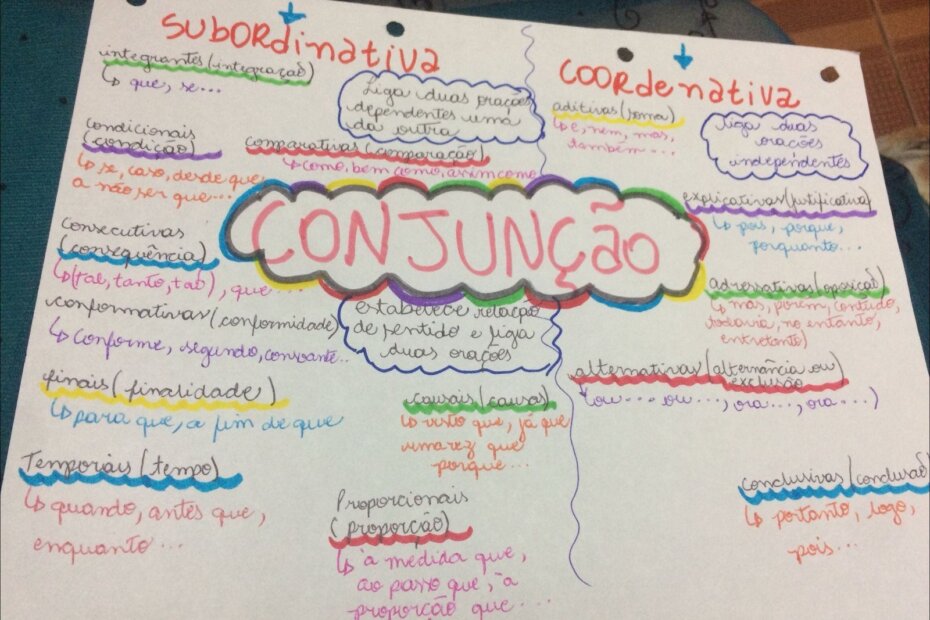 SUBORDINATIVA
integrantes (integração)
↳ que, se...
Liga duas orações
dependentes uma
da outra
condicionais
(condição)
↳ se, caso, desde que,
a não ser que...
comparativas (comparação)
↳ como, bem como, assim como
CONJUNÇÃO
estabelece relação
de sentido e liga
duas orações
consecutivas
(consequência)
↳ (tal, tanto, tão), que...
conformativas (conformidade)
↳ conforme, segundo, consoante...
finais (finalidade)
↳ para que, a fim de que
causais (causas)
↳ visto que, já que
uma vez que
porque...
Temporais (tempo)
↳ quando, antes que,
enquanto...
Proporcionais
(proporção)
↳ à medida que,
ao passo que, à
proporção que...
COORDENATIVA
aditivas (soma)
↳ e, nem, mas,
também...
liga duas
orações
independentes
explicativas (justificativa)
↳ pois, porque,
porquanto...
adversativas (oposição)
↳ mas, porém, contudo,
todavia, no entanto,
entretanto)
alternativas (alternância ou
exclusão
↳ (ou... ou..., ora..., ora...)
conclusivas (conclusão)
↳ portanto, logo,
pois...